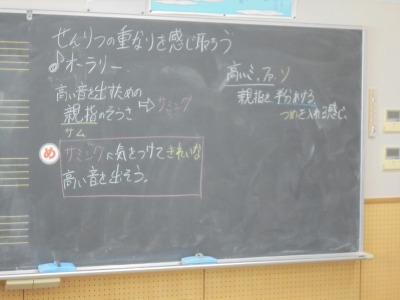 せんりつの重なりを感じ取ろう
♪オーラリー
高い音を出すための
親指のそうさ ⇨ サミング
サム
め
サミングに気をつけてきれいな
高い音を出そう。
高いミ、ファ、ソ
親指を半分あける
つめを入れる感じ。